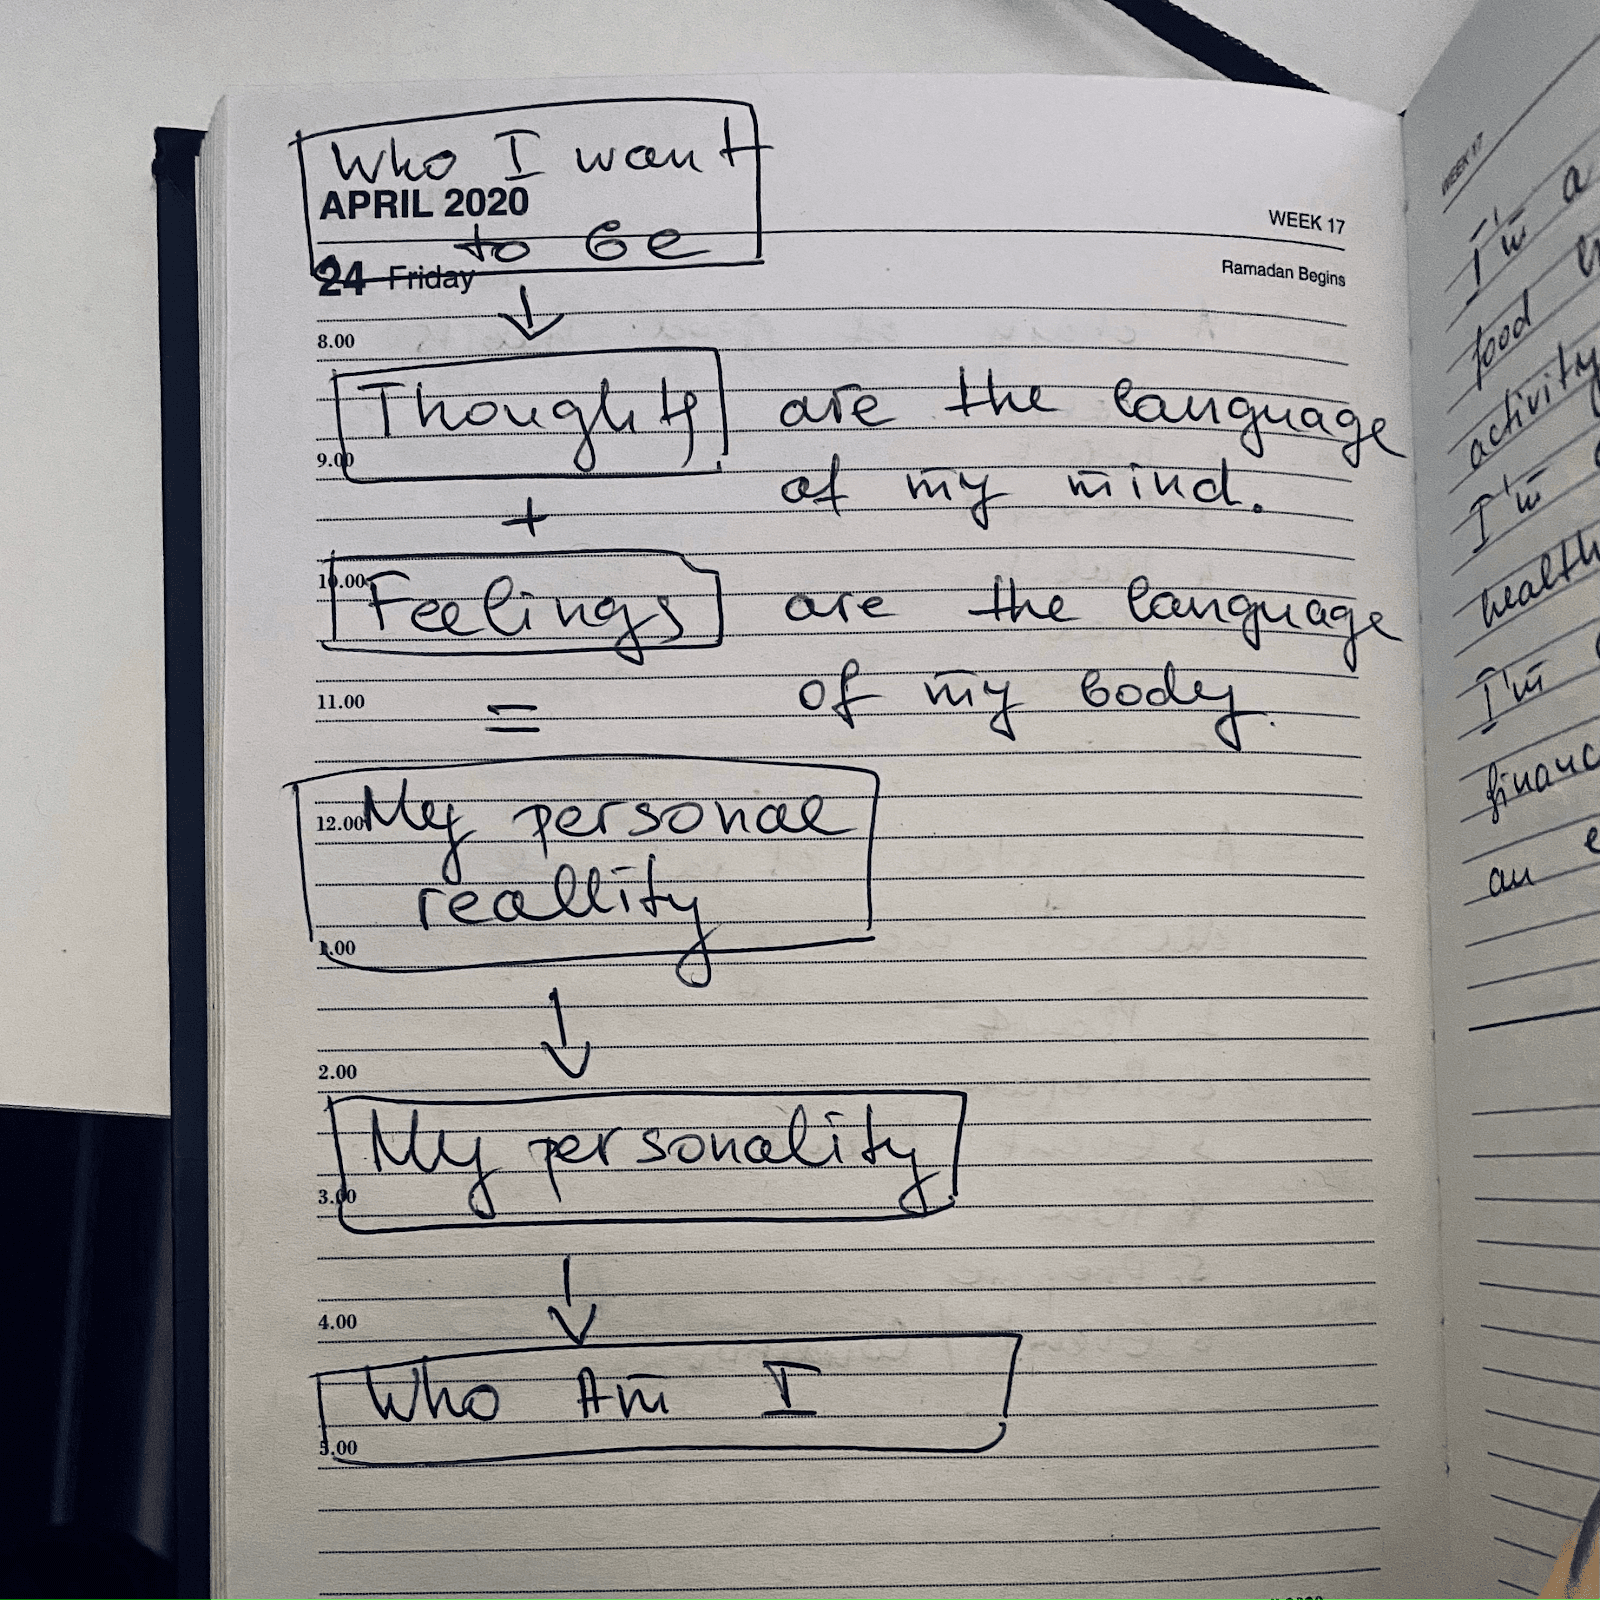 Who I want
APRIL 2020
to be
WEEK 17
24 Friday
Ramadan Begins
8.00
Thoughts are the language
9.00
of my mind.
+
10.00
Feelings are the language
11.00
of my body.
=
12.00
My personal
reallity
1.00
2.00
My personality
3.00
4.00
Who Am I
5.00
WEEK 17
I'm a
food
activity
I'm
health
I'm
financ
an e